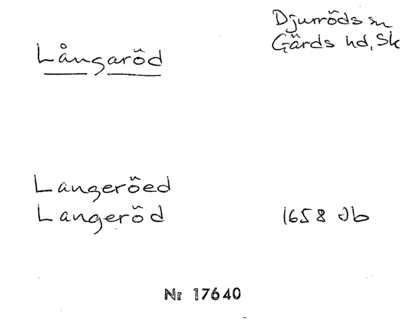 Långaröd
Djurröds sn
Gärds hd, Sk
Langeröed
Langeröd 1658 Jb
Nr 17640